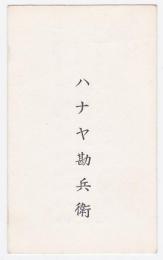 ハナヤ勘兵衛